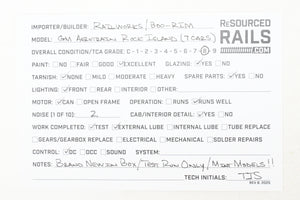 IMPORTER/BUILDER: RAILWORKS/BOO-RIM
MODEL: GM AEROTRAIN ROCK ISLAND (7 CARS)
OVERALL CONDITION/TCA GRADE: C-1-2-3-4-5-6-7-8-9
PAINT: NO FAIR GOOD EXCELLENT GLAZING: YES NO
TARNISH: NONE MILD MODERATE HEAVY SPARE PARTS: YES NO
LIGHTING: FRONT REAR INTERIOR OTHER:
MOTOR: CAN OPEN FRAME OPERATION: RUNS RUNS WELL
NOISE (1 OF 10): 2 CAB/INTERIOR DETAIL: YES NO
WORK COMPLETED: TEST EXTERNAL LUBE INTERNAL LUBE TUBE REPLACE
GEARS/GEARBOX REPLACE ELECTRICAL MECHANICAL SOLDER REPAIRS
CONTROL: DC DCC SOUND SYSTEM:
NOTES: BRAND NEW IN BOX/TEST RUN ONLY/MINT MODELS!!
TECH INITIALS: TJS
RESOURCED
RAILS
.COM
REV 8, 2025